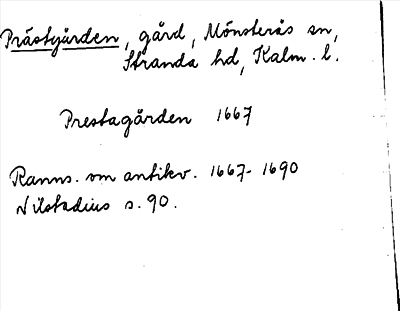 Prästgården, gård, Mönsterås sn,
Stranda hd, Kalm. l.
Prestagården 1667
Ranns. om antikv. 1667-1690
Nilstadius s. 90.